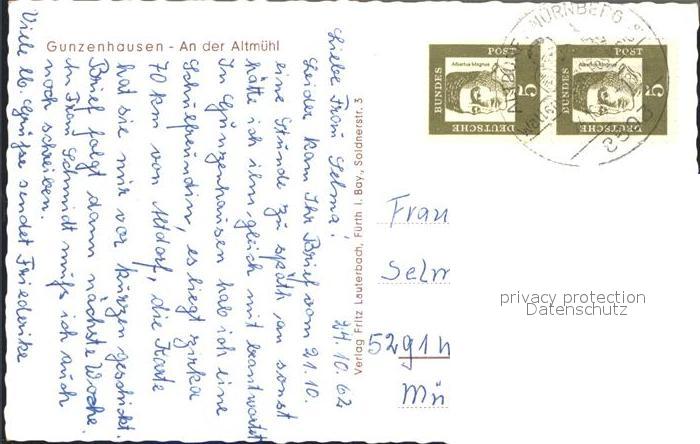 Gunzenhausen - An der Altmühl
24.10.62
Liebe Frau Selma!
Leider kam Ihr Brief vom 21.10.
eine Stunde zu spät an sonst
hätte ich ihn gleich mit beantwortet
In Gunzenhausen hab ich eine
Schreibfreundin, es liegt zirka
70 km von Altdorf, die Karte
hat sie mir vor kurzen geschickt.
Brief folgt dann nächste Woche.
An Frau Schmidt muß ich auch
noch schreiben.
Viele lb. Grüße sendet Friederike
Verlag Fritz Lauterbach, Fürth i. Bay., Soldnerstr. 3
NÜRNBERG
BUNDES
POST
Albertus Magnus
5
DEUTSCHE
BUNDES
POST
Albertus Magnus
5
DEUTSCHE
Frau
Selm
5291
Mün
privacy protection
Datenschutz